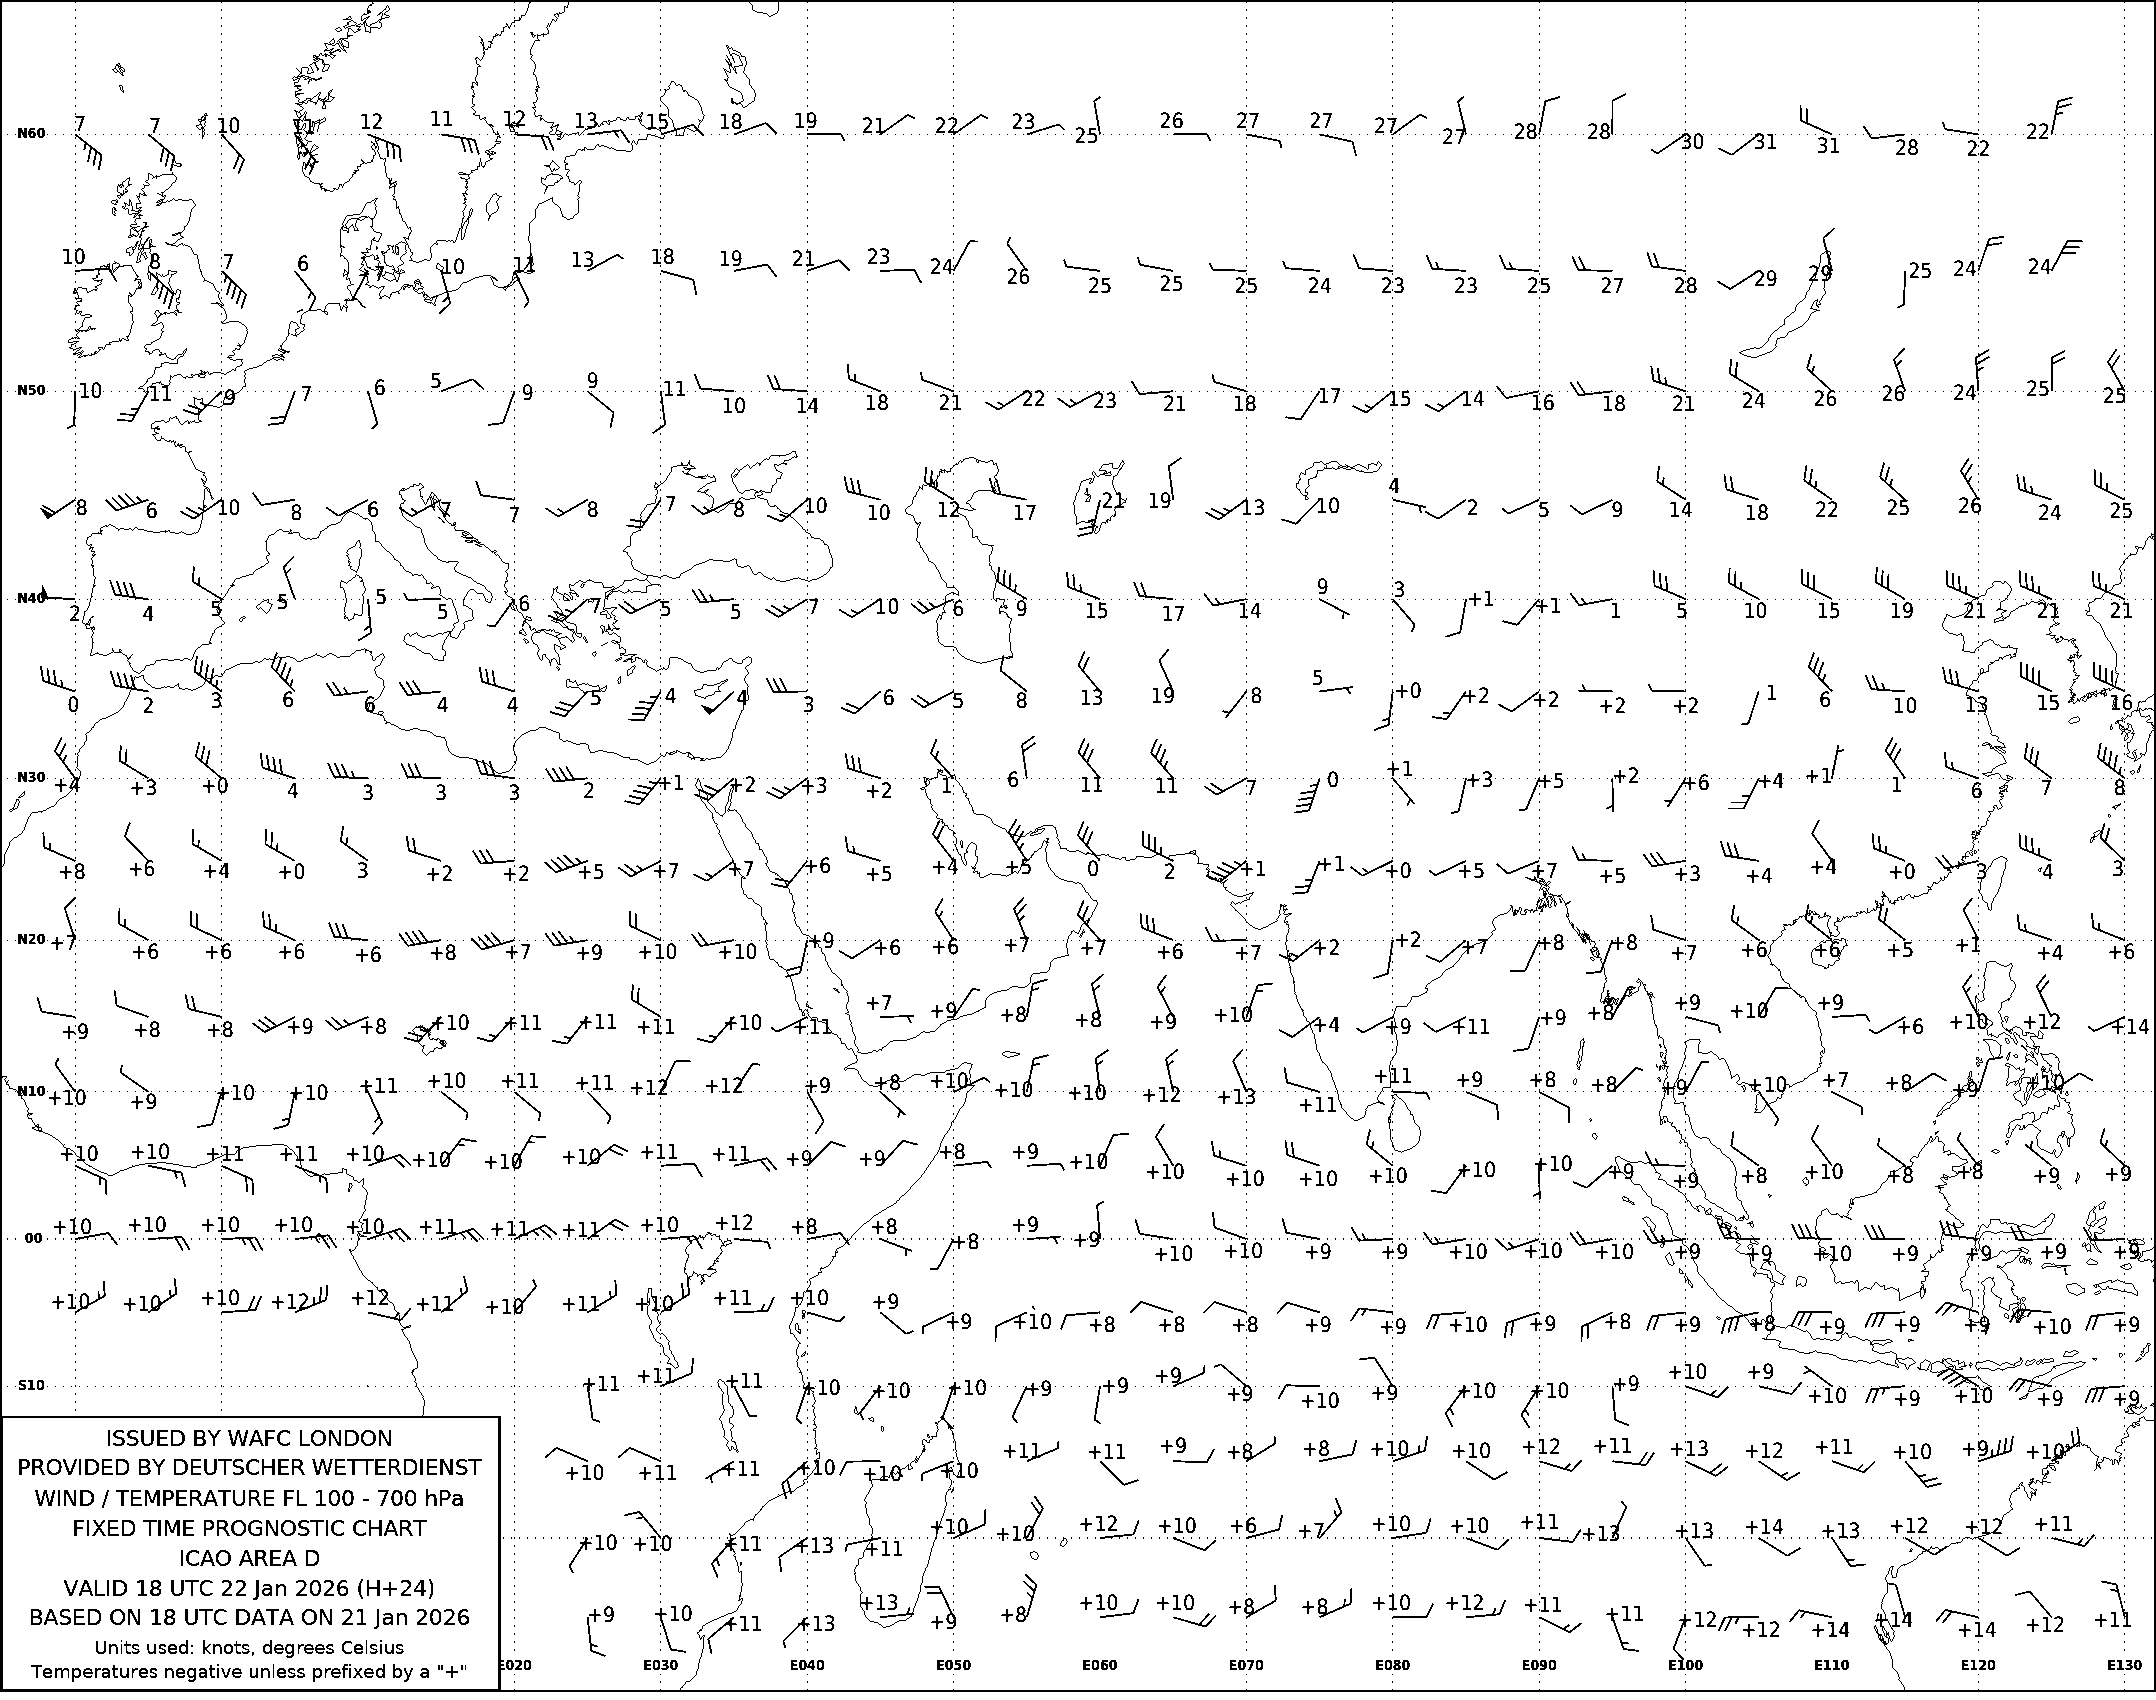 7 7 10 11 12 11 12 13 15 18 19 21 22 23 25 26 27 27 27 27 28 28 30 31 31 28 22 22
N60
10 8 7 6 7 10 11 13 18 19 21 23 24 26 25 25 25 24 23 23 25 27 28 29 29 25 24 24
N50 10 11 9 7 6 5 9 9 11 10 14 18 21 22 23 21 18 17 15 14 16 18 21 24 26 26 24 25 25
8 6 10 8 6 7 7 8 7 8 10 10 12 17 21 19 13 10 4 2 5 9 14 18 22 25 26 24 25
N40 2 4 5 5 5 5 6 7 5 5 7 10 6 9 15 17 14 9 3 +1 +1 1 5 10 15 19 21 21 21
0 2 3 6 6 4 4 5 4 4 3 6 5 8 13 19 8 5 +0 +2 +2 +2 +2 1 6 10 13 15 16
N30 +4 +3 +0 4 3 3 3 2 +1 +2 +3 +2 1 6 11 11 7 0 +1 +3 +5 +2 +6 +4 +1 1 6 7 8
+8 +6 +4 +0 3 +2 +2 +5 +7 +7 +6 +5 +4 +5 0 2 +1 +1 +0 +5 +7 +5 +3 +4 +4 +0 3 4 3
N20 +7 +6 +6 +6 +6 +8 +7 +9 +10 +10 +9 +6 +6 +7 +7 +6 +7 +2 +2 +7 +8 +8 +7 +6 +6 +5 +1 +4 +6
+9 +8 +8 +9 +8 +10 +11 +11 +11 +10 +11 +7 +9 +8 +8 +9 +10 +4 +9 +11 +9 +8 +9 +10 +9 +6 +10 +12 +14
N10 +10 +9 +10 +10 +11 +10 +11 +11 +12 +12 +9 +8 +10 +10 +10 +12 +13 +11 +11 +9 +8 +8 +9 +10 +7 +8 +9 +10
+10 +10 +11 +11 +10 +10 +10 +10 +11 +11 +9 +9 +8 +9 +10 +10 +10 +10 +10 +10 +10 +9 +9 +8 +10 +8 +8 +9 +9
00 +10 +10 +10 +10 +10 +11 +11 +11 +10 +12 +8 +8 +8 +9 +9 +10 +10 +9 +9 +10 +10 +10 +9 +9 +10 +9 +9 +9 +9
+10 +10 +10 +12 +12 +11 +10 +11 +10 +11 +10 +9 +9 +10 +8 +8 +8 +9 +9 +10 +9 +8 +9 +8 +9 +9 +9 +10 +9
S10 +11 +11 +11 +10 +10 +10 +9 +9 +9 +9 +10 +9 +10 +10 +9 +10 +9 +10 +9 +10 +9 +9
+10 +11 +11 +10 +10 +10 +11 +11 +9 +8 +8 +10 +10 +12 +11 +13 +12 +11 +10 +9 +10
+10 +10 +11 +13 +11 +10 +10 +12 +10 +6 +7 +10 +10 +11 +13 +13 +14 +13 +12 +12 +11
+9 +10 +11 +13 +13 +9 +8 +10 +10 +8 +8 +10 +12 +11 +11 +12 +12 +14 +14 +14 +12 +11
E020 E030 E040 E050 E060 E070 E080 E090 E100 E110 E120 E130
ISSUED BY WAFC LONDON
PROVIDED BY DEUTSCHER WETTERDIENST
WIND / TEMPERATURE FL 100 - 700 hPa
FIXED TIME PROGNOSTIC CHART
ICAO AREA D
VALID 18 UTC 22 Jan 2026 (H+24)
BASED ON 18 UTC DATA ON 21 Jan 2026
Units used: knots, degrees Celsius
Temperatures negative unless prefixed by a "+"